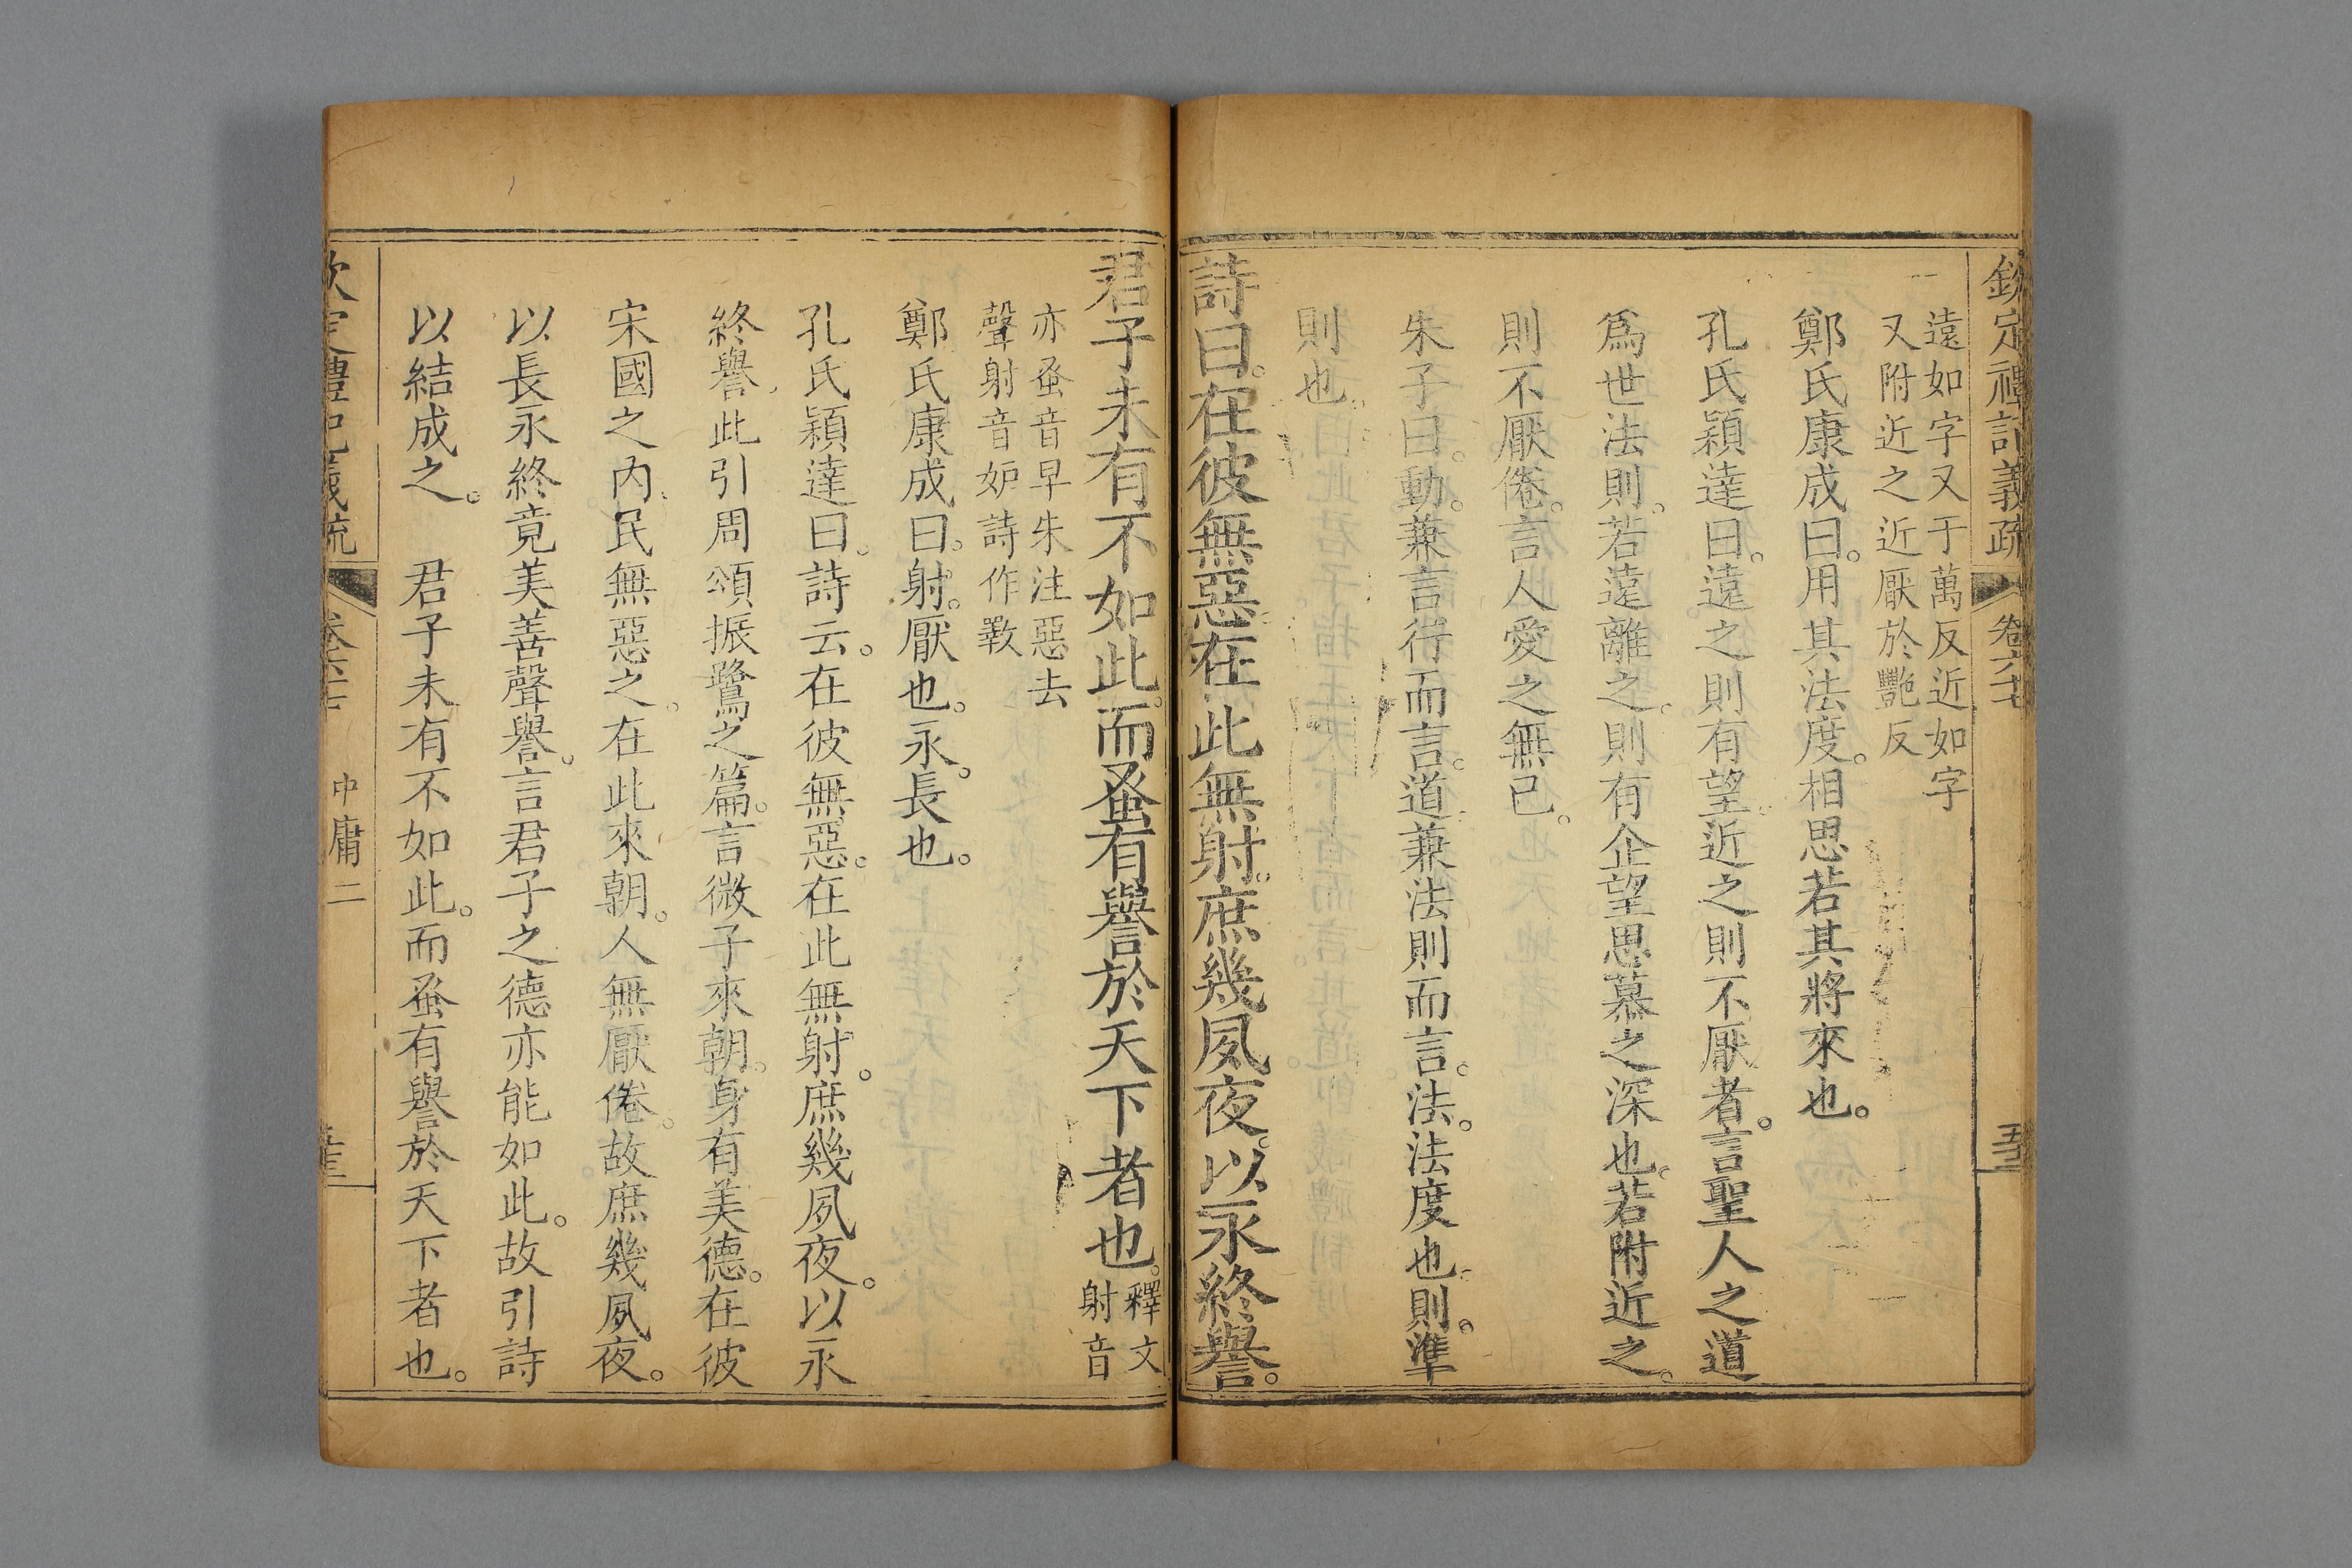 欽定禮記義疏 卷六十七 五三
遠如字又于萬反近如字
又附近之近厭於艷反
鄭氏康成曰。用其法度。相思若其將來也。
孔氏穎達曰。遠之則有望。近之則不厭者。言聖人之道
爲世法則。若遠離之。則有企望思慕之深也。若附近之。
則不厭倦。言人愛之無已。
朱子曰。動。兼言行而言。道。兼法則而言。法。法度也。則。準
則也。
詩曰。在彼無惡。在此無射。庶幾夙夜。以永終譽。
君子未有不如此。而蚤有譽於天下者也。釋文
射音
亦蚤音早朱注惡去
聲射音妒詩作斁
鄭氏康成曰。射。厭也。永。長也。
孔氏穎達曰。詩云。在彼無惡。在此無射。庶幾夙夜。以永
終譽。此引周頌振鷺之篇。言微子來朝。身有美德。在彼
宋國之內。民無惡之。在此來朝。人無厭倦。故庶幾夙夜。
以長永終竟美善聲譽。言君子之德亦能如此。故引詩
以結成之。 君子未有不如此。而蚤有譽於天下者也。
欽定禮記義疏 中庸二